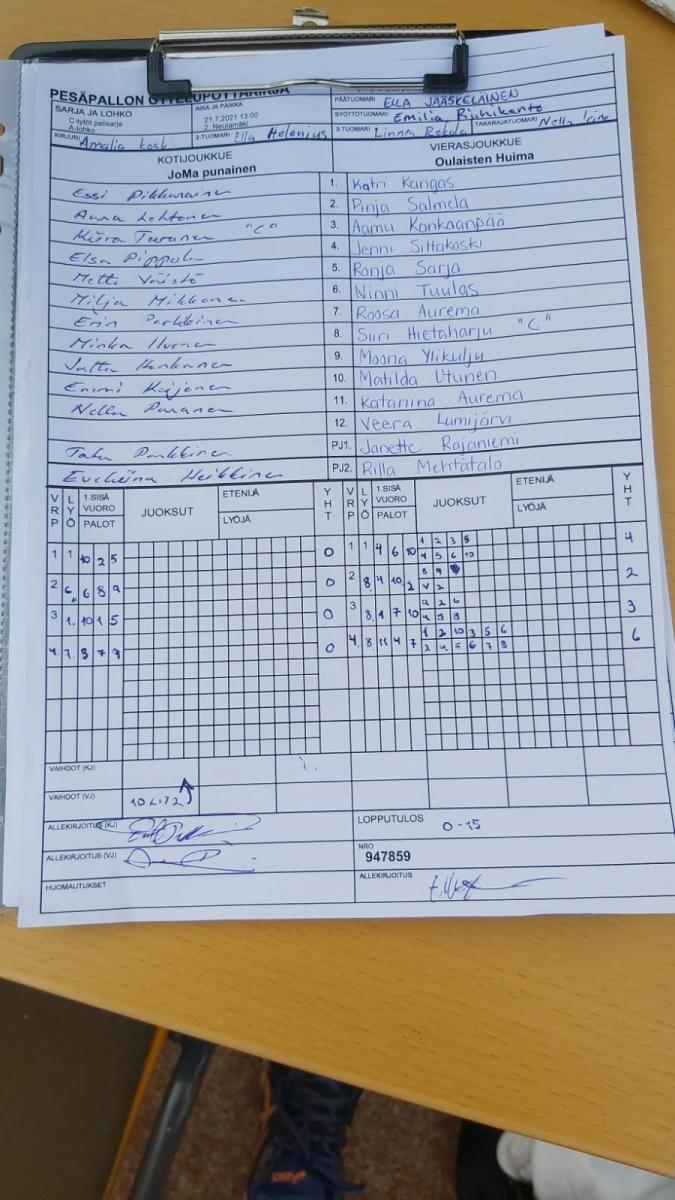 PESÄPALLON OTTELUPÖYTÄKIRJA
SARJA JA LOHKO
C-tytöt pelisarja
A-lohko
AIKA JA PAIKKA
21.7.2021 13:00
2. Neulamäki
PÄÄTUOMARI ELLA JÄÄSKELÄINEN
SYÖTTÖTUOMARI Emilia
KIRJURI Amalia Kosk
2-TUOMARI Ella Helenius
3-TUOMARI Linnea
TAKARAJATUOMARI Nella
KOTIJOUKKUE
JoMa punainen
VIERASJOUKKUE
Oulaisten Huima
Essi Pikkarainen
1. Katri Kangas
Aura Lehtonen
2. Pinja Salmela
Kiira Turunen "C"
3. Aamu Kankaanpää
Elsa Pippola
4. Jenni Siltakoski
Metti Väistö
5. Ronja Sarja
Milja Mikkonen
6. Ninni Tuulas
Erin Parkkinen
7. Roosa Aurema
Minka
8. Siiri Hietaharju "C"
Jutta Honkanen
9. Moona Ylikulju
Emmi Keijonen
10. Matilda Utunen
Nella Puranen
11. Katariina Aurema
12. Veera Lumijärvi
Parkkinen
PJ1. Janette Rajaniemi
Eveliina Heikkinen
PJ2. Rilla Mehtätalo
VRP LYÖ 1.SISÄ VUORO PALOT JUOKSUT ETENIJÄ LYÖJÄ YHT VRP LYÖ 1.SISÄ VUORO PALOT JUOKSUT ETENIJÄ LYÖJÄ YHT
1 1 10 2 5 0 1 1 4 6 10 1 2 3 5 4
4 5 6 10
2 6. 6 8 9 0 2 8. 4 10. 2 8 9 2
V 2
3 1. 10 1 5 0 3 3. 1 7 10 9 2 6 3
4 5 8
4. 7. 3 7 7 0 4. 8 11 4 7 1 2 10 3 5 6 6
2 4 5 6 7 8
VAIHDOT (KJ)
VAIHDOT (VJ) 10 L=72
ALLEKIRJOITUS (KJ)
LOPPUTULOS 0-15
ALLEKIRJOITUS (VJ)
NRO
947859
HUOMAUTUKSET
ALLEKIRJOITUS